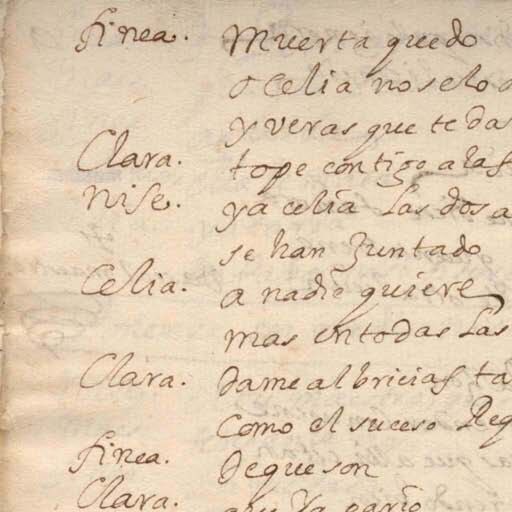 finea. Muerta quedo
o celia noselo
y veras que te das
Clara. tope contigo a las
Nise. ya celia las dos a
se han Juntado
Celia. a nadie quiere
mas entodas las
Clara. Dame albricias ta
Como el suceso Req
finea. De que son
Clara. pario